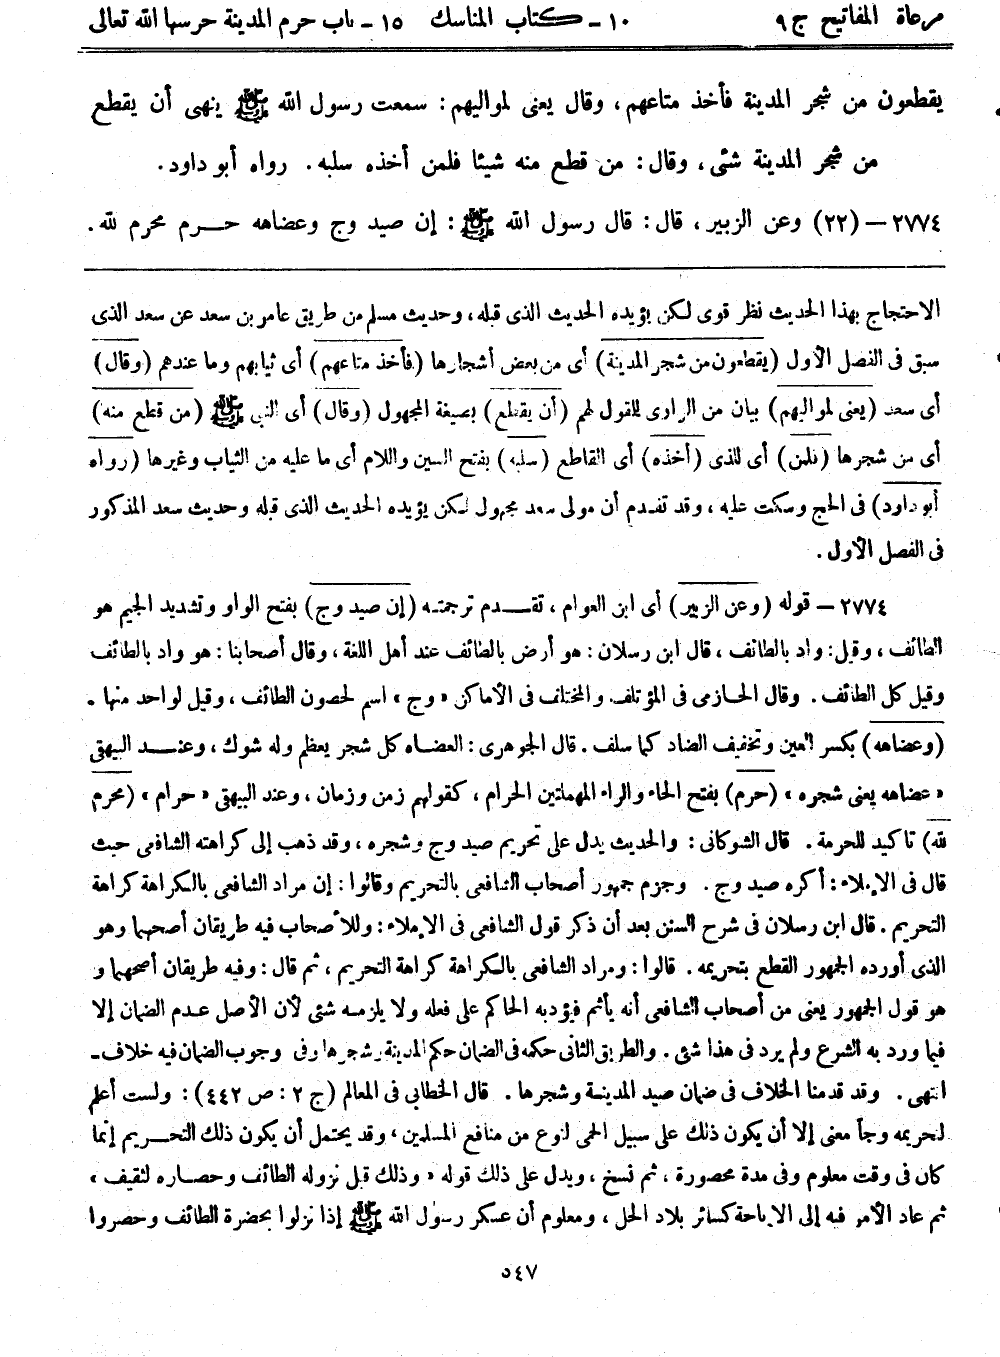 مرعاة المفاتيح ج ٩ ١٠ - كتاب المناسك ١٥ - باب حرم المدينة حرسها الله تعالى
يقطعون من شجر المدينة فأخذ متاعهم، وقال يعنى لمواليهم: سمعت رسول الله ﷺ ينهى أن يقطع
من شجر المدينة شئى، وقال: من قطع منه شيئا فلمن أخذه سلبه. رواه أبو داود.
٢٧٧٤ - (٢٢) وعن الزبير، قال: قال رسول الله ﷺ: إن صيد وج وعضاهه حرم محرم لله.
الاحتجاج بهذا الحديث نظر قوى لكن يؤيده الحديث الذى قبله، وحديث مسلم من طريق عامر بن سعد عن سعد الذى
سبق فى الفصل الأول (يقطعون من شجر المدينة) أى من بعض أشجارها (فأخذ متاعهم) أى ثيابهم وما عندهم (وقال)
أى سعد (يعنى لمواليهم) بيان من الراوى للقول لهم (أن يقطع) بصيغة المجهول (وقال) أى النبى ﷺ (من قطع منه)
أى من شجرها (فلمن) أى للذى (أخذه) أى القاطع (سلبه) بفتح السين واللام أى ما عليه من الثياب وغيرها (رواه
أبو داود) فى الحج وسكت عليه، وقد تقدم أن مولى سعد مجهول لكن يؤيده الحديث الذى قبله وحديث سعد المذكور
فى الفصل الأول.
٢٧٧٤ - قوله (وعن الزبير) أى ابن العوام، تقدم ترجمته (إن صيد وج) بفتح الواو وتشديد الجيم هو
الطائف، وقيل: واد بالطائف، قال ابن رسلان: هو أرض بالطائف عند أهل اللغة، وقال أصحابنا: هو واد بالطائف
وقيل كل الطائف. وقال الحازمى فى المؤتلف والمختلف فى الأماكن «وج» اسم لحصون الطائف، وقيل لواحد منها.
(وعضاهه) بكسر العين وتخفيف الضاد كما سلف. قال الجوهرى: العضاه كل شجر يعظم وله شوك، وعند البيهقى
«عضاهه يعنى شجره» (حرم) بفتح الحاء والراء المهملتين الحرام، كقولهم زمن وزمان، وعند البيهقى «حرام» (محرم
لله) تاكيد للحرمة. قال الشوكانى: والحديث يدل على تحريم صيد وج وشجره، وقد ذهب إلى كراهته الشافعى حيث
قال فى الإملاء: أكره صيد وج. وجزم جمهور أصحاب الشافعى بالتحريم وقالوا: إن مراد الشافعى بالكراهة كراهة
التحريم. قال ابن رسلان فى شرح السنن بعد أن ذكر قول الشافعى فى الإملاء: وللأصحاب فيه طريقان أصحهما وهو
الذى أورده الجمهور القطع بتحريمه. قالوا: ومراد الشافعى بالكراهة كراهة التحريم، ثم قال: وفيه طريقان أصحهما و
هو قول الجمهور يعنى من أصحاب الشافعى أنه يأثم فيؤدبه الحاكم على فعله ولا يلزمه شئى لأن الأصل عدم الضمان إلا
فيما ورد به الشرع ولم يرد فى هذا شئى. والطريق الثانى حكمه فى الضمان حكم المدينة وشجرها وفى وجوب الضمان فيه خلاف-
انتهى. وقد قدمنا الخلاف فى ضمان صيد المدينة وشجرها. قال الخطابى فى المعالم (ج ٢: ص ٤٤٢): ولست أعلم
لتحريمه وجأ معنى إلا أن يكون ذلك على سبيل الحمى لنوع من منافع المسلمين، وقد يحتمل أن يكون ذلك التحريم إنما
كان فى وقت معلوم وفى مدة محصورة، ثم نسخ، ويدل على ذلك قوله «وذلك قبل نزوله الطائف وحصاره لثقيف»
ثم عاد الأمر فيه إلى الإباحة كسائر بلاد الحل، ومعلوم أن عسكر رسول الله ﷺ إذا نزلوا بحضرة الطائف وحصروا
٥٤٧